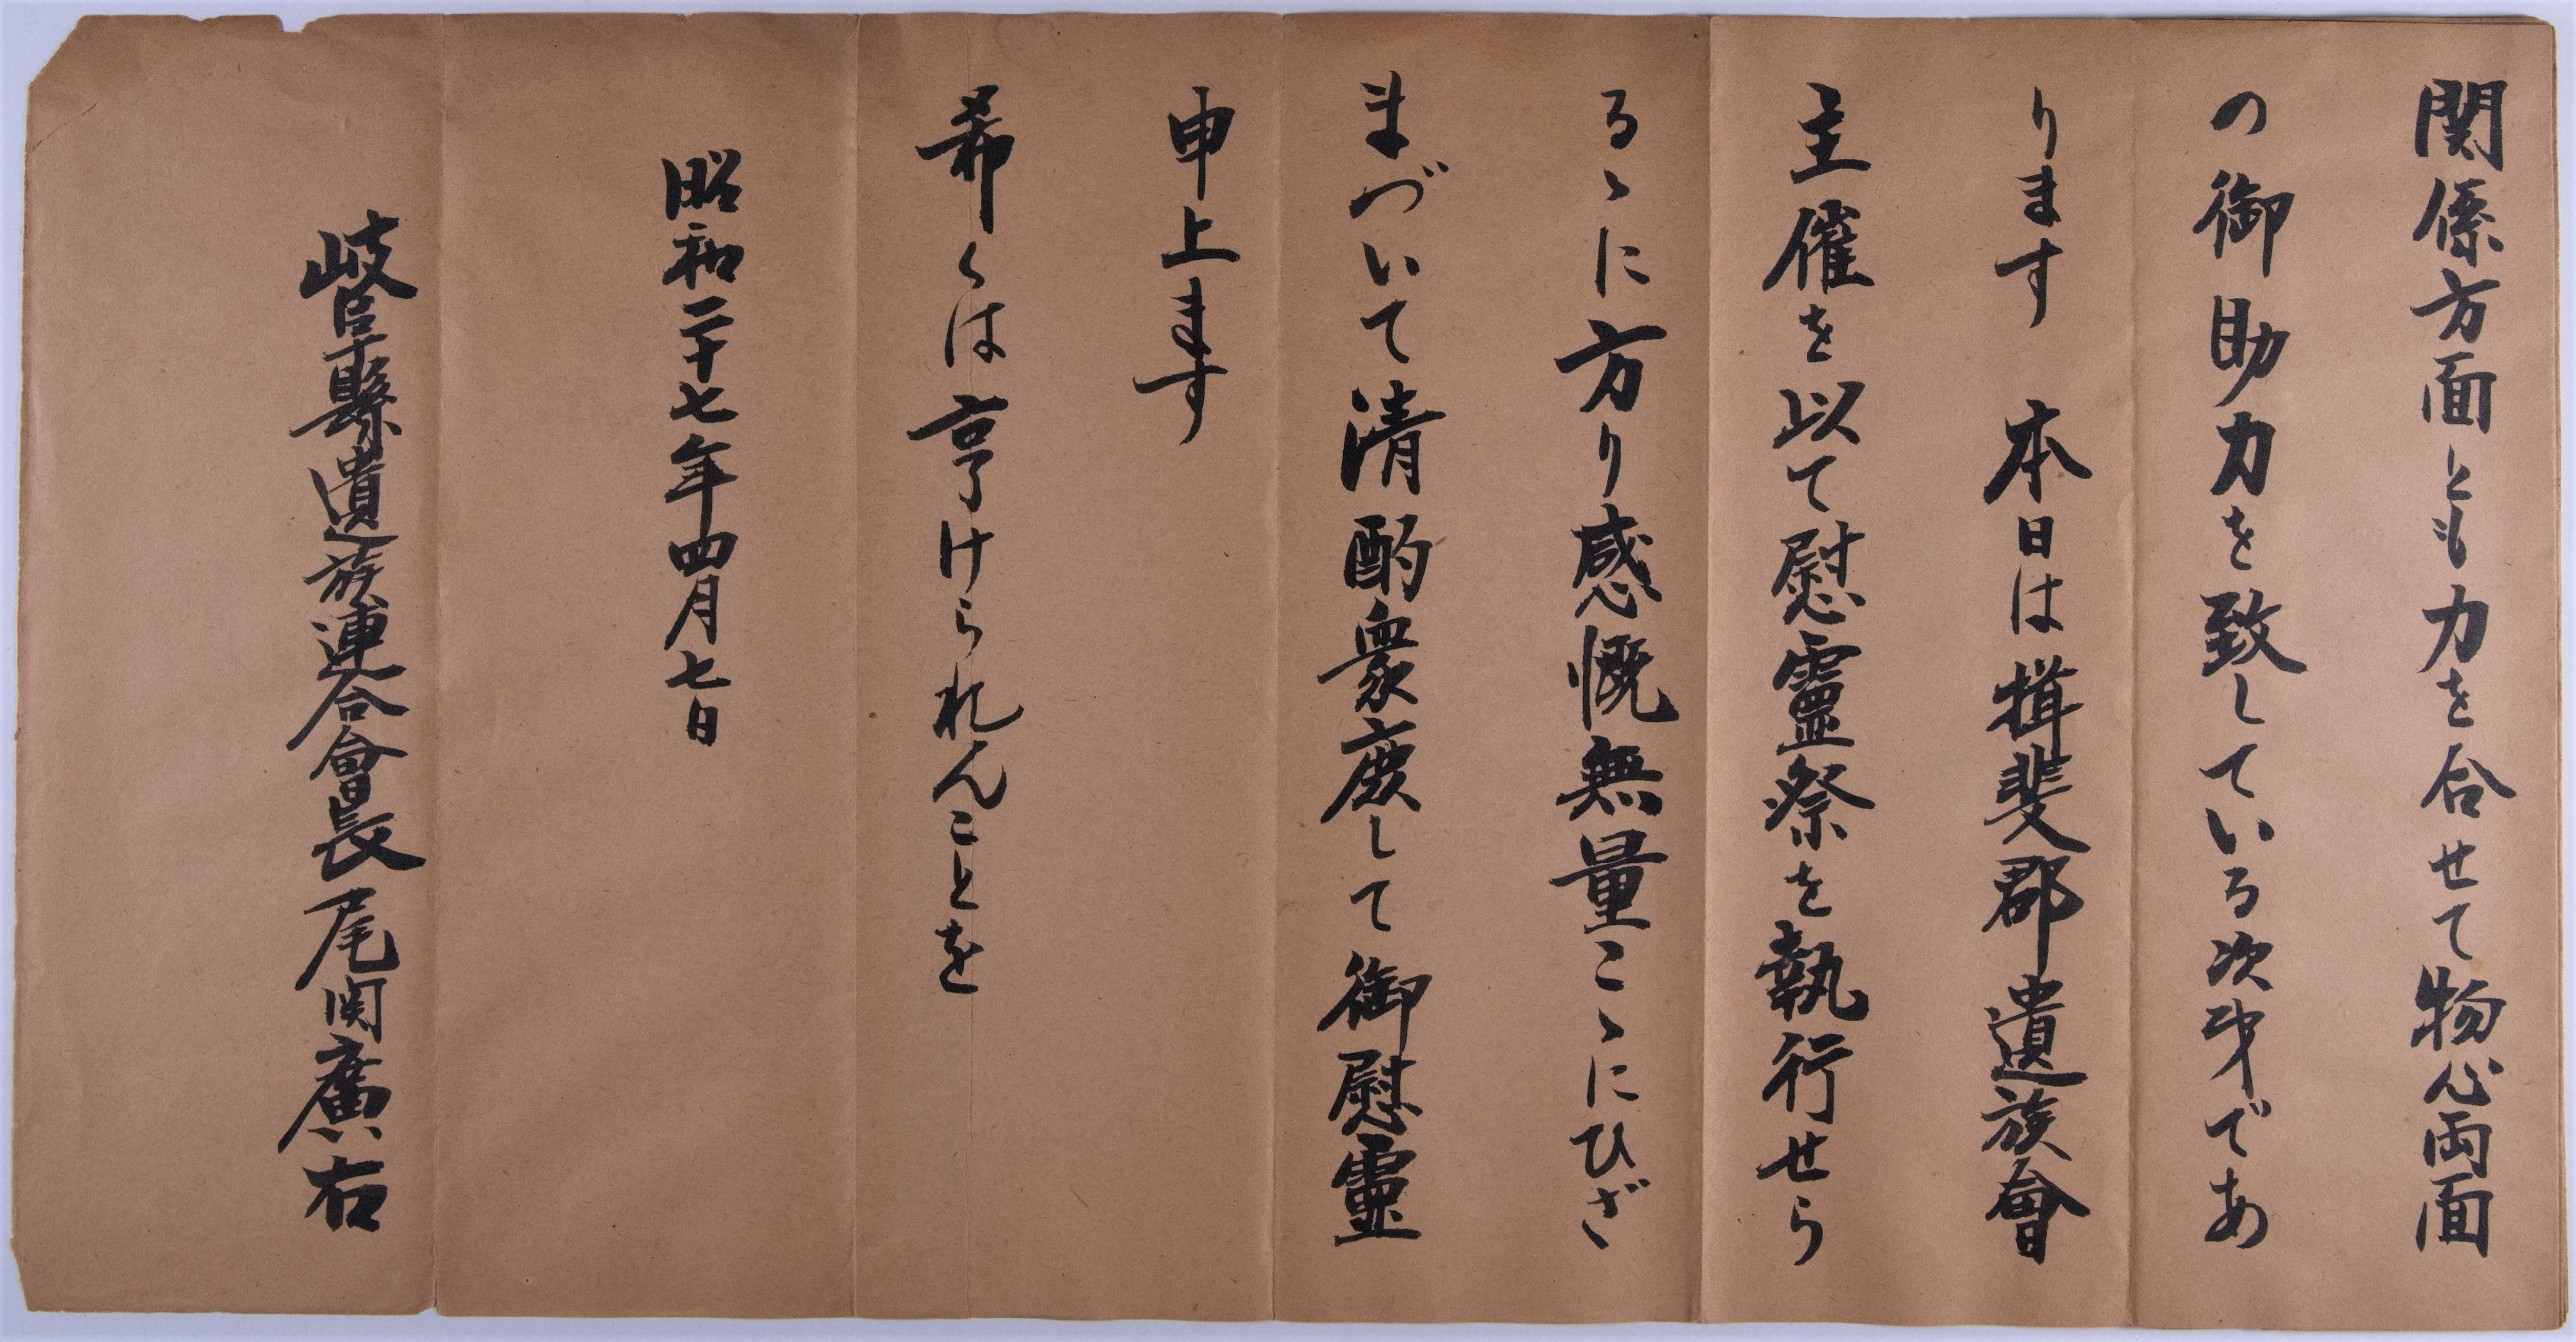 関係方面とも力を合せて物心両面
の御助力を致している次才であ
ります 本日は揖斐郡遺族會
主催を以て慰霊祭を執行せら
るゝに方り感慨無量こゝにひざ
まづいて清酌衆庶して御慰霊
申上ます
希くは享けられんことを
昭和二十七年四月七日
岐阜縣遺族連合會長尾関廣右